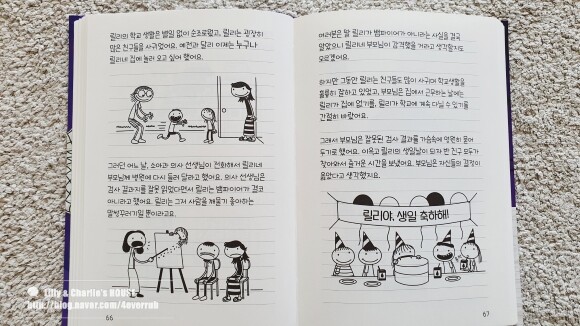 릴리의 학교 생활은 별일 없이 순조로웠고, 릴리는 굉장히
많은 친구들을 사귀었어요. 예전과 달리 이제는 누구나
릴리네 집에 놀러 오고 싶어 했어요.
그러던 어느 날, 소아과 의사 선생님이 전화해서 릴리네
부모님께 병원에 다시 들러 달라고 했어요. 의사 선생님은
검사 결과지를 잘못 읽었다면서 릴리는 뱀파이어가 결코
아니라고 했어요. 릴리는 그저 사람을 깨물기 좋아하는
말썽꾸러기일 뿐이라고요.
66
여러분은 딸 릴리가 뱀파이어가 아니라는 사실을 결국
알았으니 릴리네 부모님이 감격했을 거라고 생각할지도
모르겠어요.
하지만 그동안 릴리는 친구들도 많이 사귀며 학교생활을
훌륭히 잘하고 있었고, 부모님은 집에서 근무하는 날에는
릴리가 집에 없기를, 릴리가 학교에 계속 다닐 수 있기를
간절히 바랐어요.
그래서 부모님은 잘못된 검사 결과를 가슴속에 영원히 묻어
두기로 했어요. 이윽고 릴리의 생일날이 되자 반 친구 모두가
찾아와서 즐거운 시간을 보냈어요. 부모님은 자신들의 결정이
옳았다고 생각했지요.
릴리야, 생일 축하해!
67
Lily & Charlie's HOUSE
http://blog.naver.com/4everruh